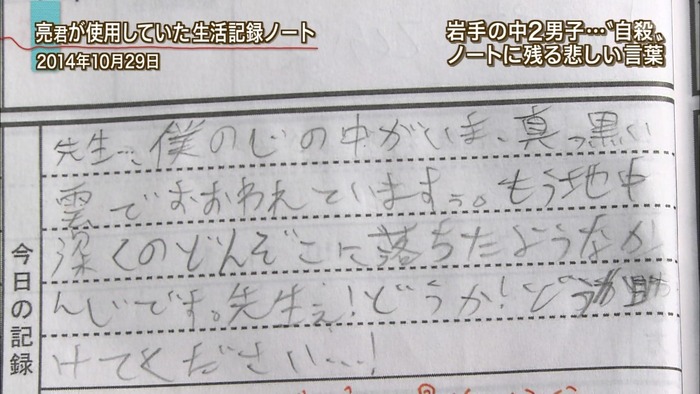 亮君が使用していた生活記録ノート
2014年10月29日
岩手の中2男子…〝自殺〟
ノートに残る悲しい言葉
今日の記録
先生…、僕の心の中がいま、真っ黒い
雲でおおわれていますぅ。もう地中
深くのどんぞこに落ちたようなか
んじです。先生ぇ!どうか!どうか助
けてください…!